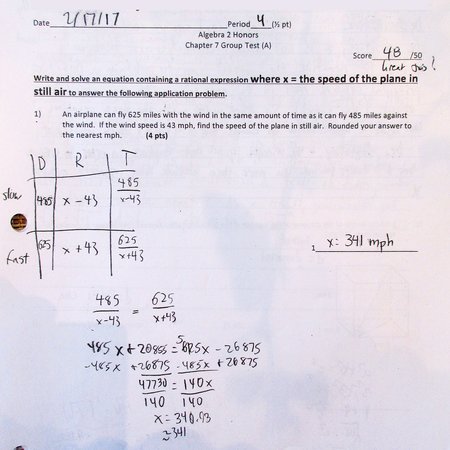 Date 2/17/17 Period 4 (½ pt)
Algebra 2 Honors
Chapter 7 Group Test (A)
Score 48 /50
Great Job!
Write and solve an equation containing a rational expression where x = the speed of the plane in
still air to answer the following application problem.
1) An airplane can fly 625 miles with the wind in the same amount of time as it can fly 485 miles against
the wind. If the wind speed is 43 mph, find the speed of the plane in still air. Rounded your answer to
the nearest mph. (4 pts)
D R T
slow 485 x - 43 485/x-43
fast 625 x + 43 625/x+43
1 x: 341 mph
485/x-43 = 625/x+43
485x + 20855 = 625x - 26875
-485x + 26875 -485x + 26875
47730 = 140x
140 140
x = 340.93
≈341